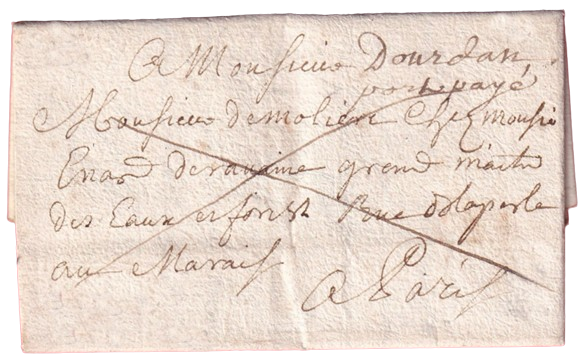 A Monsieur Dourdan,
port payé
Monsieur de moliere Chez monsie
Enard de ravaine grand maitre
des Eaux et forest Rue dela perle
au Marais
A Paris